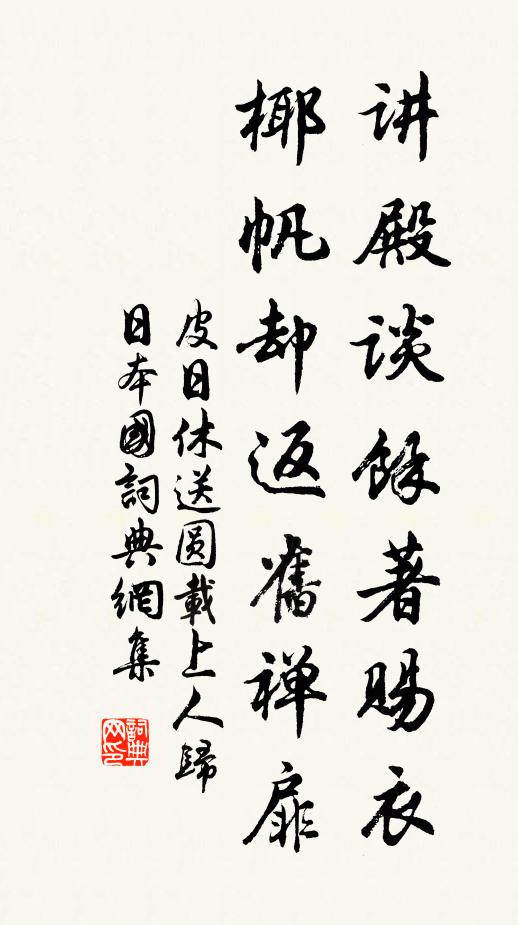 讲殿谈餘著赐衣
椰帆却返舊禅扉
皮日休送圆載上人歸
日本國詞典網集
詞典
网印